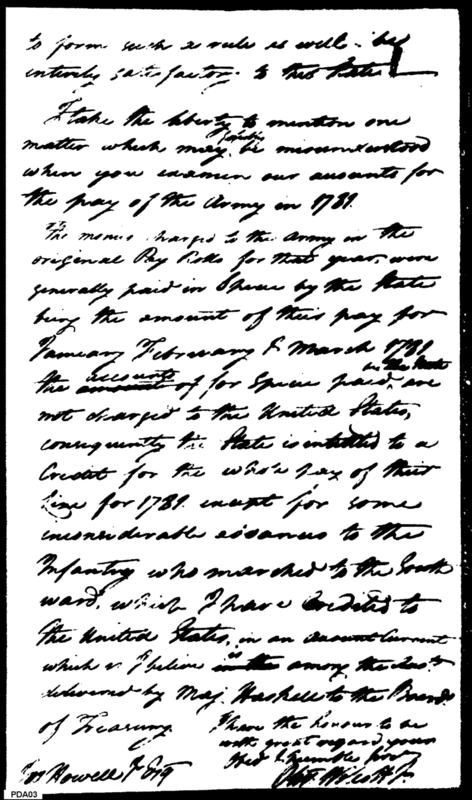 to form such a rule as will be
entirely satisfactory to this State
I take the liberty to mention one
matter which may possibly be misunderstood
when you examin our accounts for
the pay of the Army in 1781.
The monies charged to the Army in the
original Pay Rolls for that year, were
generally paid in Specie by the State
being the amount of their pay for
January February & March 1781
the accounts of for Specie paid, in the State are
not charged to the United States,
consequently the State is intitled to a
Credit for the whole pay of their
Line for 1781. except for some
inconsiderable advances to the
Infantry who marched to the South
ward, which I have credited to
the United States, in an account Current
which I believe is among the
delivered by Maj. Haskell to the Board
of Treasury. I have the honour to be
with great regard your
Obed & humble
Jos Howell Jr Esq
PDA03